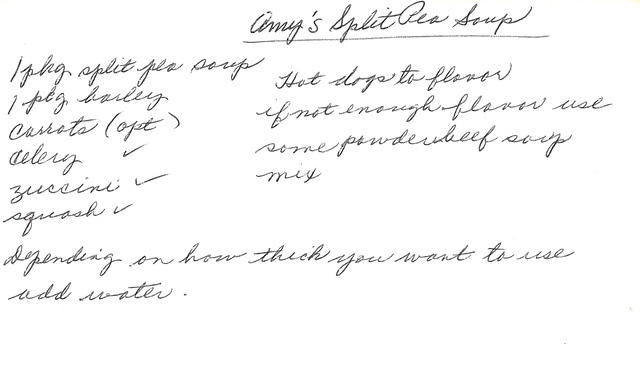 Amy's Split Pea Soup
1 pkg split pea soup
1 pkg barley
carrots (opt)
celery ✓
zuccini ✓
squash ✓
Hot dogs to flavor
if not enough flavor use
some powder beef soup
mix
Depending on how thick you want to use
add water.